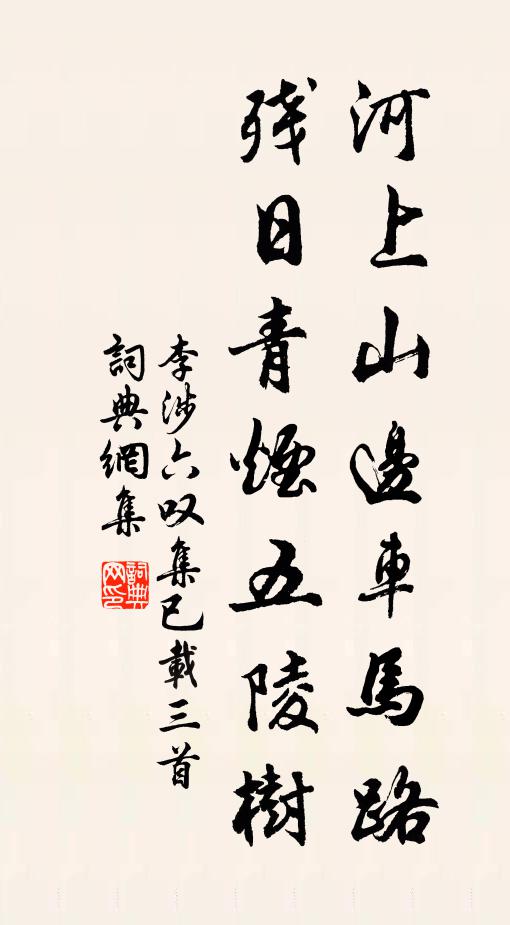 河上山邊車馬路
残日青煙五陵樹
李涉六叹集已載三首
詞典網集
詞典网印